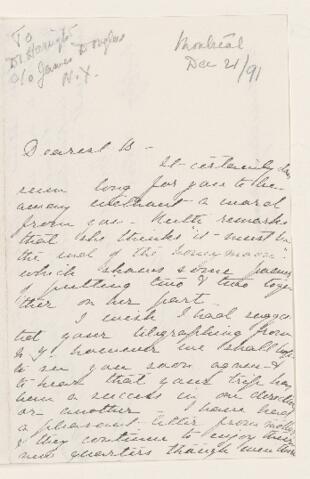 To
Dr Harington
c/o James Douglas
N.Y.
Montreal
Dec 21/91
Dearest B -
It certainly does
seem long for you to be
away without a word
from you - Ruth remarks
that she thinks "it must be
the end of the honeymoon"
which shows some power
of putting two & two toge-
ther on her part.
I wish I had
not your telegraphing from
N.Y. however we shall hope
to see you soon again &
to hear that your trip has
been a success in one direction
or another - I have had
a pleasant letter from mother
& they continue to enjoy their
new quarters though